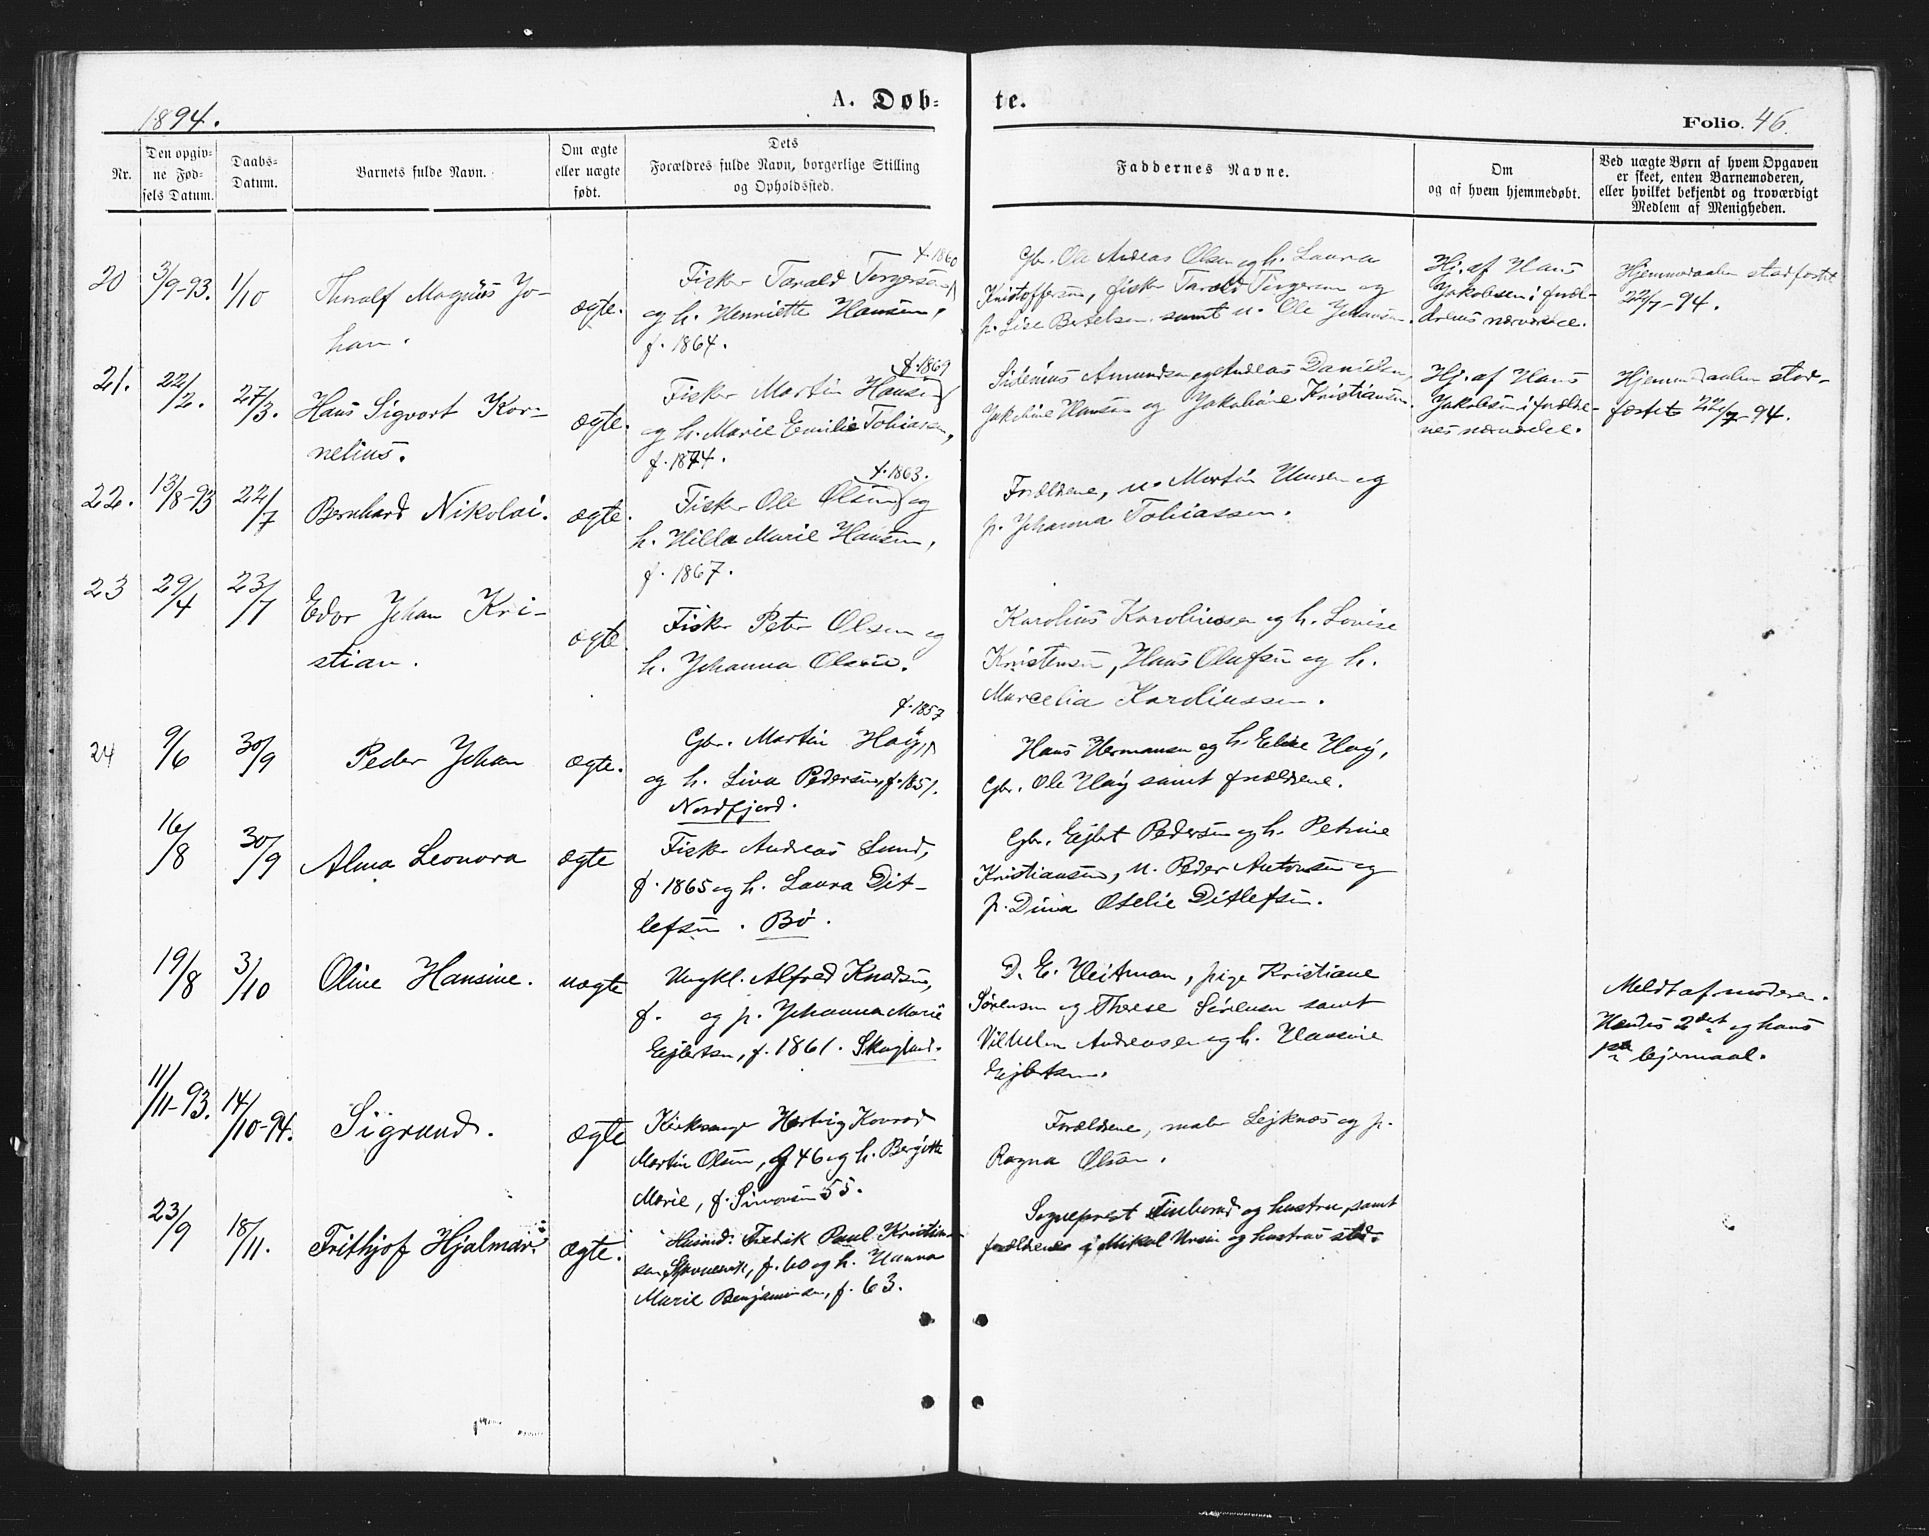 1894.
A. Døb-
te.
Folio. 46.
Nr.
Den opgiv-
ne Fød-
sels Datum.
Daabs-
Datum.
Barnets fulde Navn.
Om ægte
eller uægte
født.
Dets
Forældres fulde Navn, borgerlige Stilling
og Opholdssted.
Faddernes Navne.
Om
og af hvem hjemmedøbt.
Ved uægte Børn af hvem Opgaven
er skeet, enten Barnemoderen,
eller hvilket bekjendt og troværdigt
Medlem af Menigheden.
20 3/9-93. 1/10 Thoralf Magnus Jo-
han.
ægte.
f. 1860
Fisker Tarald Torgersen
og h. Henriette Hansen,
f. 1864.
Gbr. Ole Andreas Olsen og h. Laura
Kristoffersen, fisker Tarald Torgersen og
p. Lise Bertelsen samt u. Ole Johansen.
Hj. af Hans
Jakobsen i foræl-
drenes nærværelse.
Hjemmedaaben stadfæstet
22/7-94.
21. 22/2. 27/3. Hans Sigvart Kor-
nelius.
ægte.
f. 1869
Fisker Martin Hansen
og h. Marie Emilie Tobiassen,
f. 1874.
Sidenius Amundsen og Andreas Danielsen,
Jakobine Hansen og Jakobine Kristiansen.
Hj. af Hans
Jakobsen i forældre-
nes nærværelse.
Hjemmedaaben stad-
fæstet 22/7-94.
22. 13/8-93 22/7 Bernhard Nikolai.
ægte.
f. 1863.
Fisker Ole Olsen og
h. Hilla Marie Hansen,
f. 1867.
Forældrene, u. Martin Hansen og
p. Johanna Tobiassen.
23 29/4 23/7 Edor Johan Kri-
stian.
ægte.
Fisker Peter Olsen og
h. Johanna Olsen.
Karolius Karoliussen og h. Lovise
Kristensen, Hans Olufsen og h.
Marcelia Karoliussen.
24 9/6 30/9 Peder Johan
ægte.
f. 1857
Gbr. Martin Høy,
og h. Lina Pedersen, f. 1851.
Nordfjord.
Hans Hermansen og h. Høy,
Gbr. Ole Høy samt forældrene.
16/8 30/9 Alma Leonora
ægte
Fisker Andreas Lund,
f. 1865 og h. Laura Dit-
lefsen. Bø.
Gbr. Ejlert Pedersen og h. Petrine
Kristiansen, u. Peder Antonsen og
p. Dina Otelie Ditlefsen.
19/8 3/10 Oline Hansine.
uægte
Ungkl. Alfred Knudsen,
f. og p. Johanna Marie
Ejlertsen, f. 1861. Skaglund.
D. E. Veitman, pige Kristiane
Sørensen og Therese Sørensen samt
Vilhelm Andreasen og h. Hansine
Ejlertsen.
Meldt af moderen.
Hendes 2det og hans
1ste lejermaal.
11/11-93. 14/10-94. Sigrund.
ægte
Kirkesanger Hartvig Konrad
Martin Olsen, f. 46 og h. Bergitte
Marie, f. Simonsen 55.
Forældrene, maler Lejknæs og p.
Ragna Olsen.
23/9 18/11. Frithjof Hjalmar
ægte.
Husmd. Fredrik Paul Kristian-
sen , f. 60 og h. Hanna
Marie Benjaminsen, f. 63.
Sogneprest og hustru, samt
forældrene i Mikal og hustrus sted.